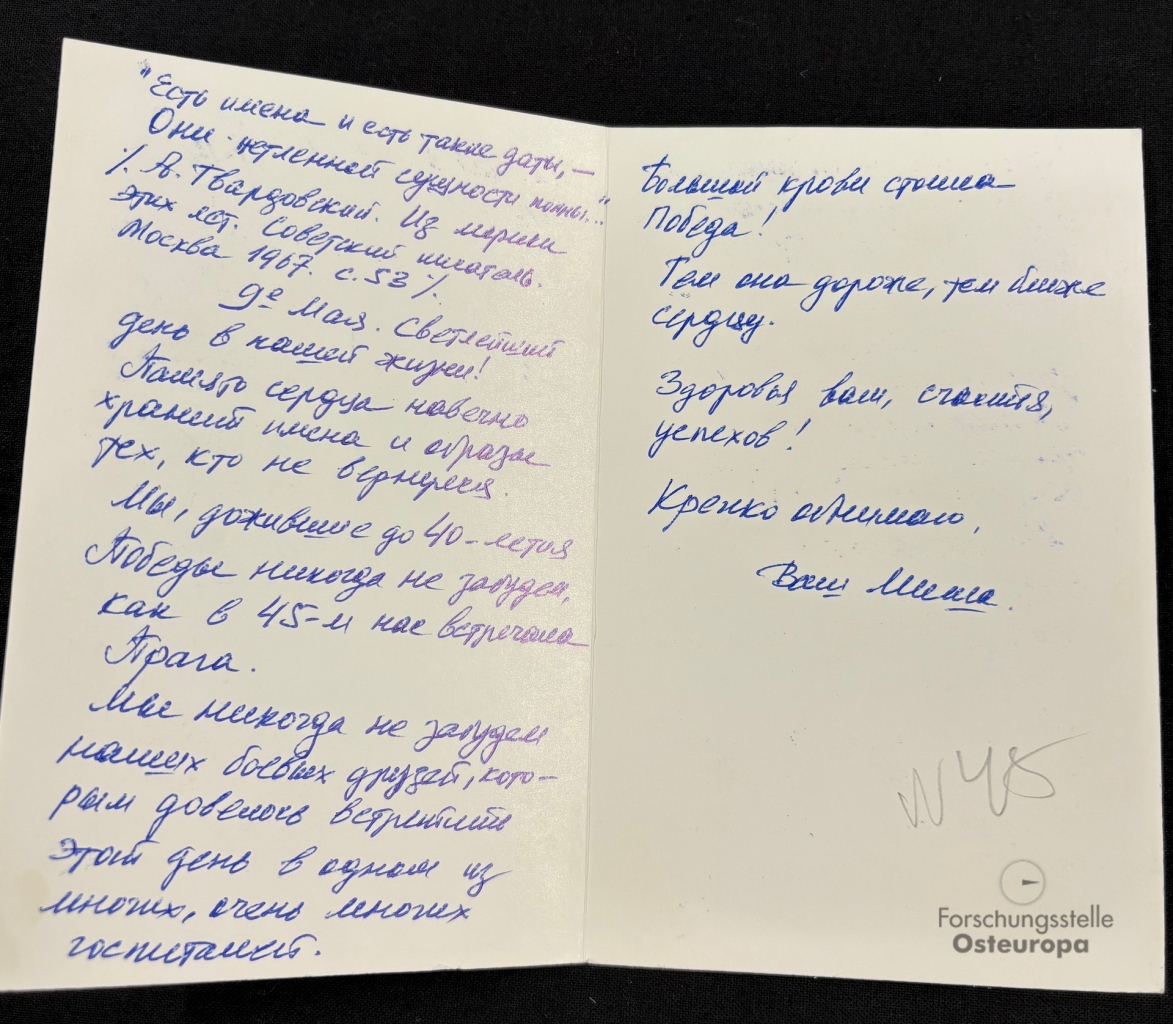 "Есть имена и есть такие даты, –
Они нетленной сущности полны..."
/. А. Твардовский. Из лирики
этих лет. Советский писатель.
Москва 1967. с. 53 /.
9е Мая. Светлейший
день в нашей жизни!
Память сердца навечно
хранит имена и образы
тех, кто не вернулся.
Мы, дожившие до 40-летия
Победы никогда не забудем,
как в 45-м нас встречала
Прага.
Мы никогда не забудем
наших боевых друзей, кото-
рым довелось встретить
этот день в одном из
многих, очень многих
госпиталей.
Большой крови стоила
Победа!
Тем она дороже, тем ближе
сердцу.
Здоровья вам, счастья,
успехов!
Крепко обнимаю,
Ваш Миша.
45
Forschungsstelle
Osteuropa